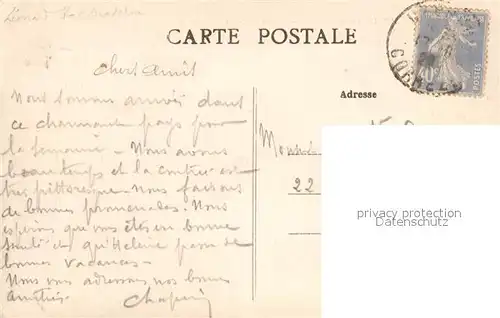 CARTE POSTALE
Chers Amis
Nous sommes arrivés dans
ce charmant pays pour
la semaine - Nous avons
beau temps et la contrée est
très pittoresque - nous faisons
de bonnes promenades. Nous
espérons que vous êtes en bonne
santé et qu'Hélène passe de
bonnes vacances -
Nous vous adressons nos bonnes
amitiés.
Adresse
22
privacy protection
Datenschutz
POSTES